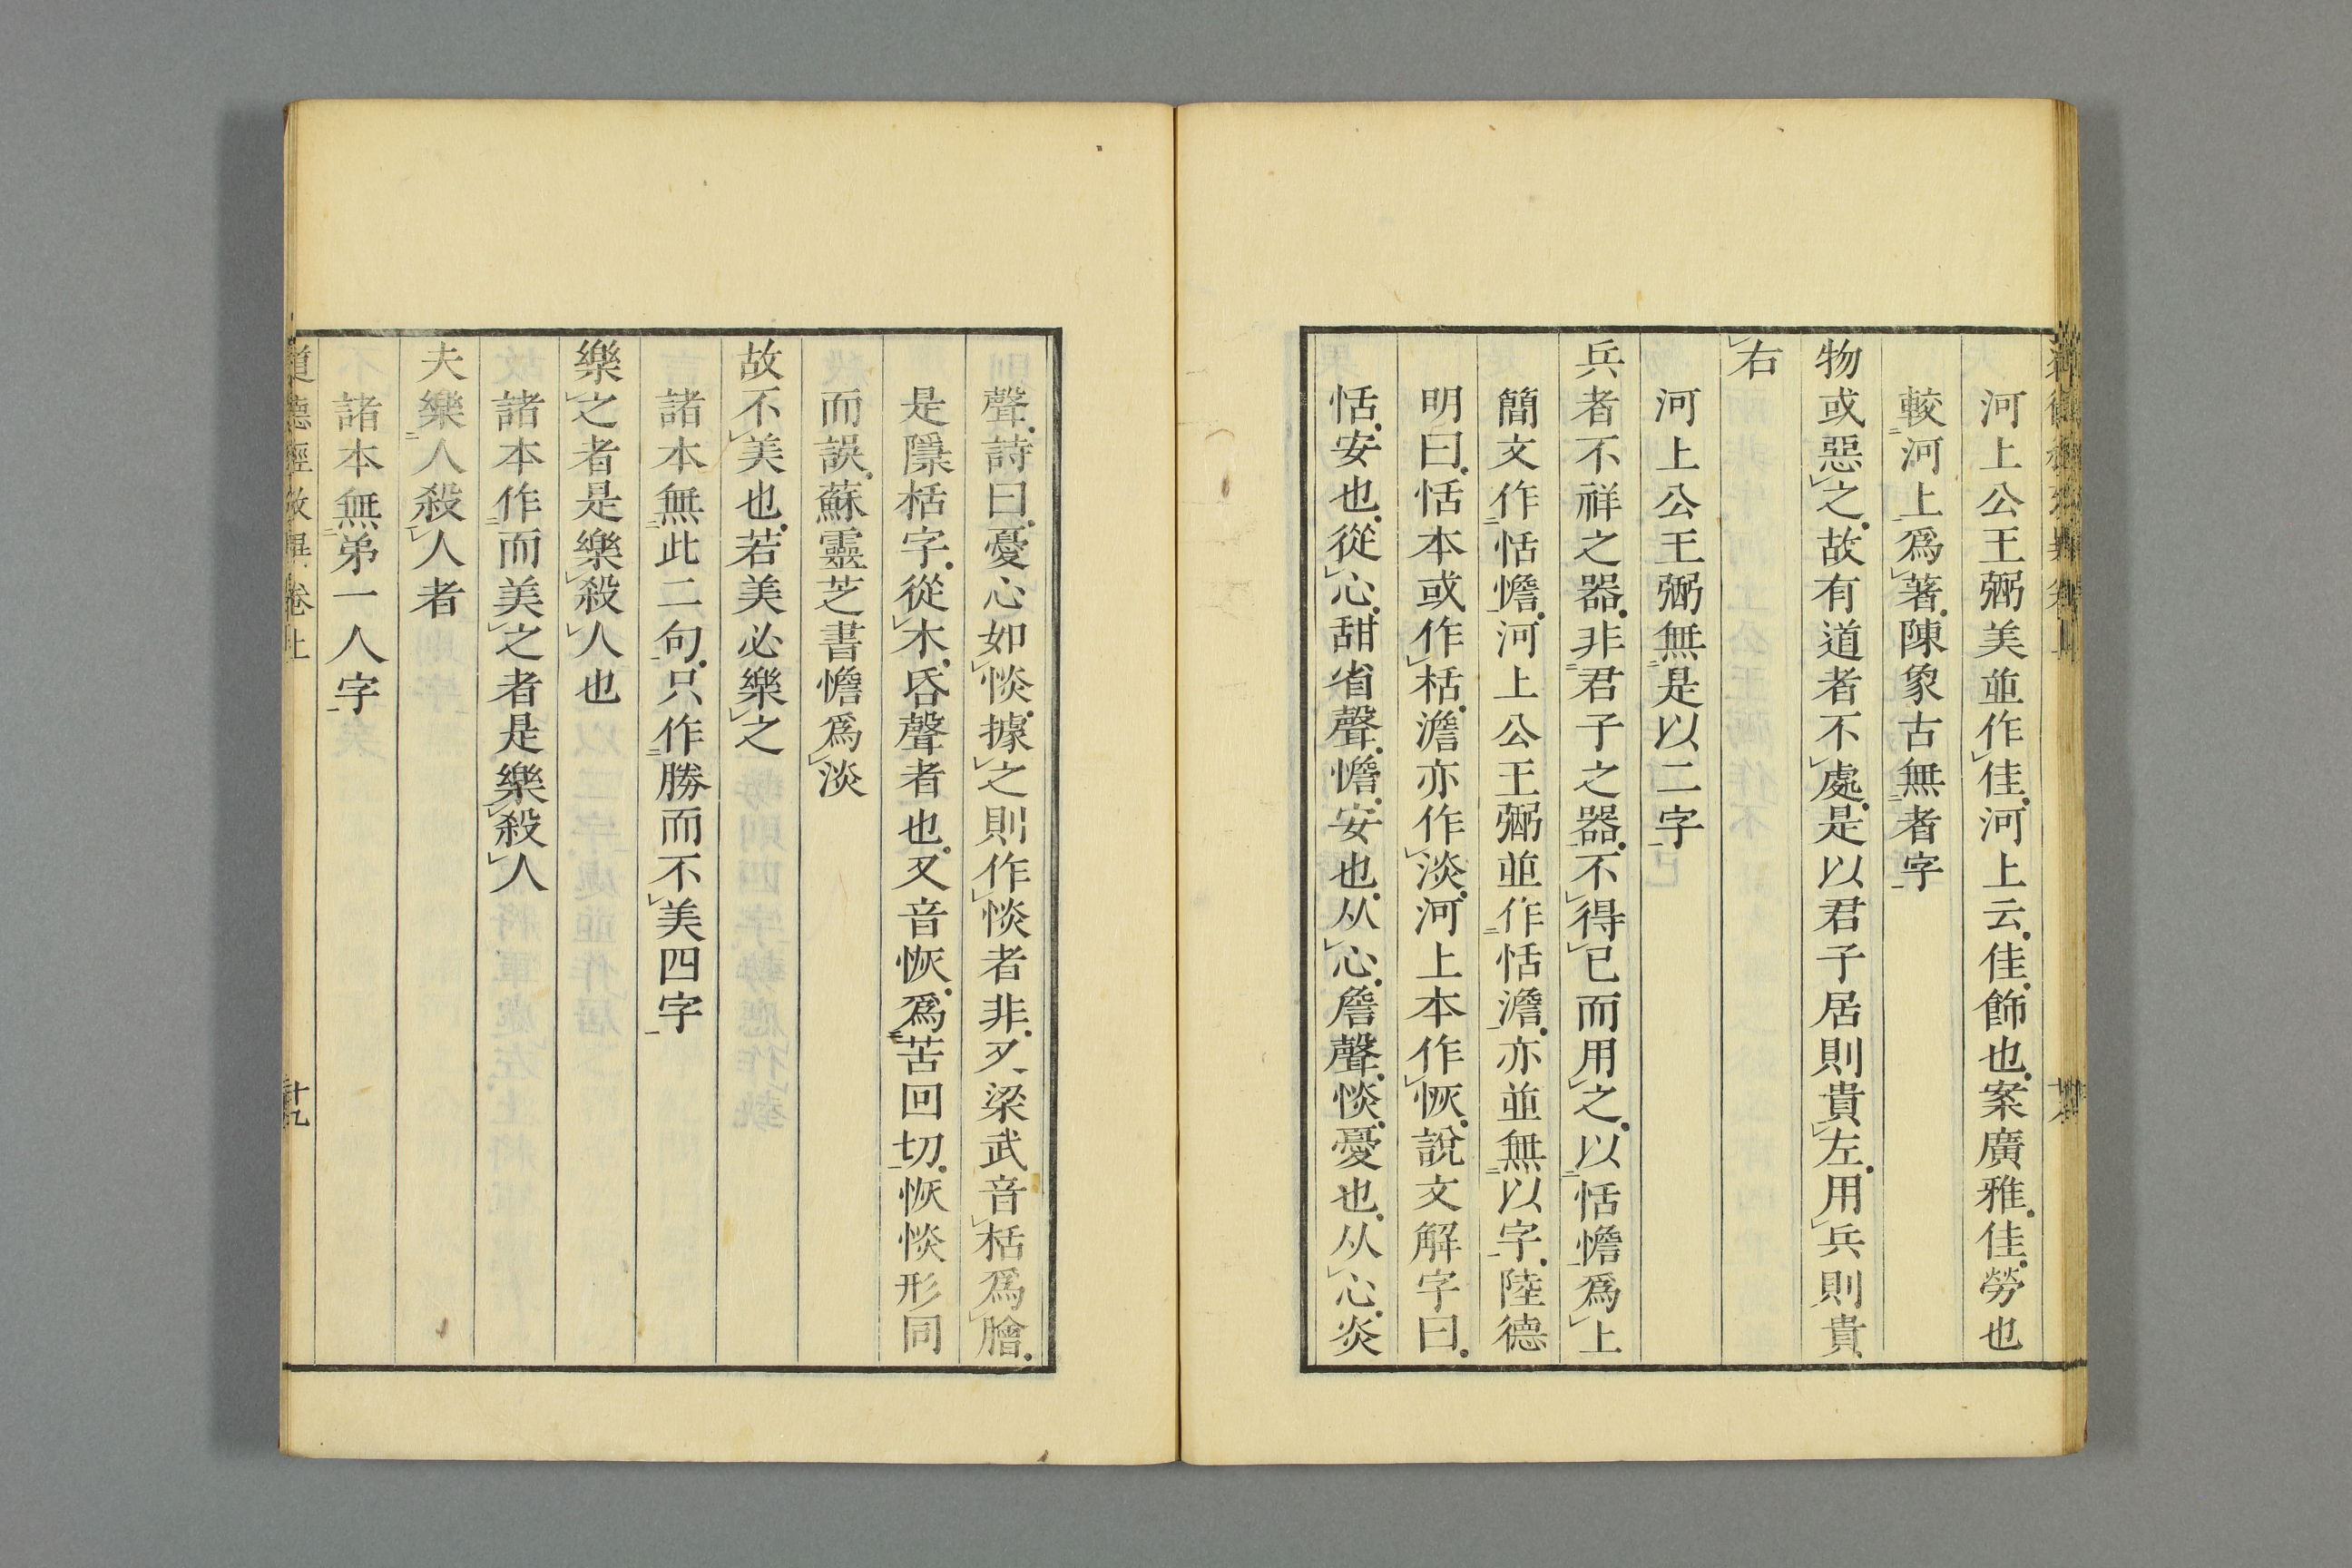 河上公王弼美並作佳河上云佳飾也案廣雅佳勞也
較河上爲著陳象古無者字
物或惡之故有道者不處是以君子居則貴左用兵則貴
右
河上公王弼無是以二字
兵者不祥之器非君子之器不得已而用之以恬憺爲上
簡文作恬憺河上公王弼並作恬澹亦並無以字陸德
明曰恬本或作栝澹亦作淡河上本作恢說文解字曰
恬安也從心甜省聲憺安也从心詹聲惔憂也从心炎
聲詩曰憂心如惔據之則作惔者非又梁武音栝爲膾
是隱栝字從木昏聲者也又音恢爲苦回切恢惔形同
而誤蘇靈芝書憺爲淡
故不美也若美必樂之
諸本無此二句只作勝而不美四字
樂之者是樂殺人也
諸本作而美之者是樂殺人
夫樂人殺人者
諸本無弟一人字
道德經攷異卷上
十九